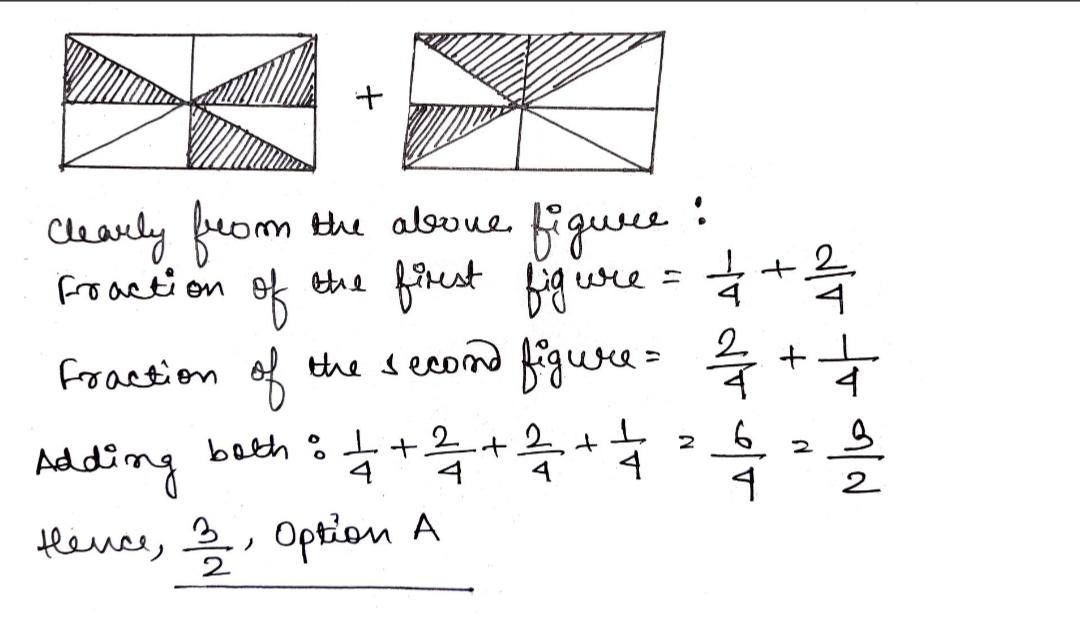 +
Clearly from the above figure :
Fraction of the first figure = 1/4 + 2/4
Fraction of the second figure = 2/4 + 1/4
Adding both : 1/4 + 2/4 + 2/4 + 1/4 = 6/4 = 3/2
Hence, 3/2, Option A